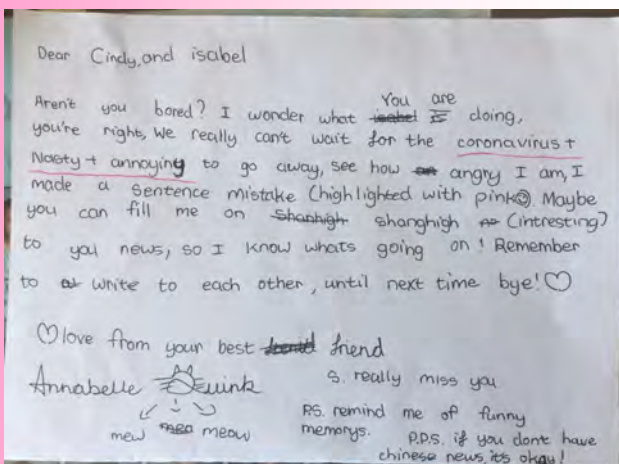 Dear Cindy, and isabel
You are
Aren't you bored? I wonder what isabel is doing,
you're right, We really can't wait for the coronavirus +
Nasty + annoying to go away, see how angry I am, I
made a sentence mistake (highlighted with pink☺). Maybe
you can fill me on Shanhigh shanghigh (intresting)
to you news, so I know whats going on! Remember
to write to each other, until next time bye!♡
♡love from your best friend
Annabelle
S. really miss you
mew meo meow
P.S. remind me of funny
memorys.
P.P.S. if you dont have
chinese news, its okay!